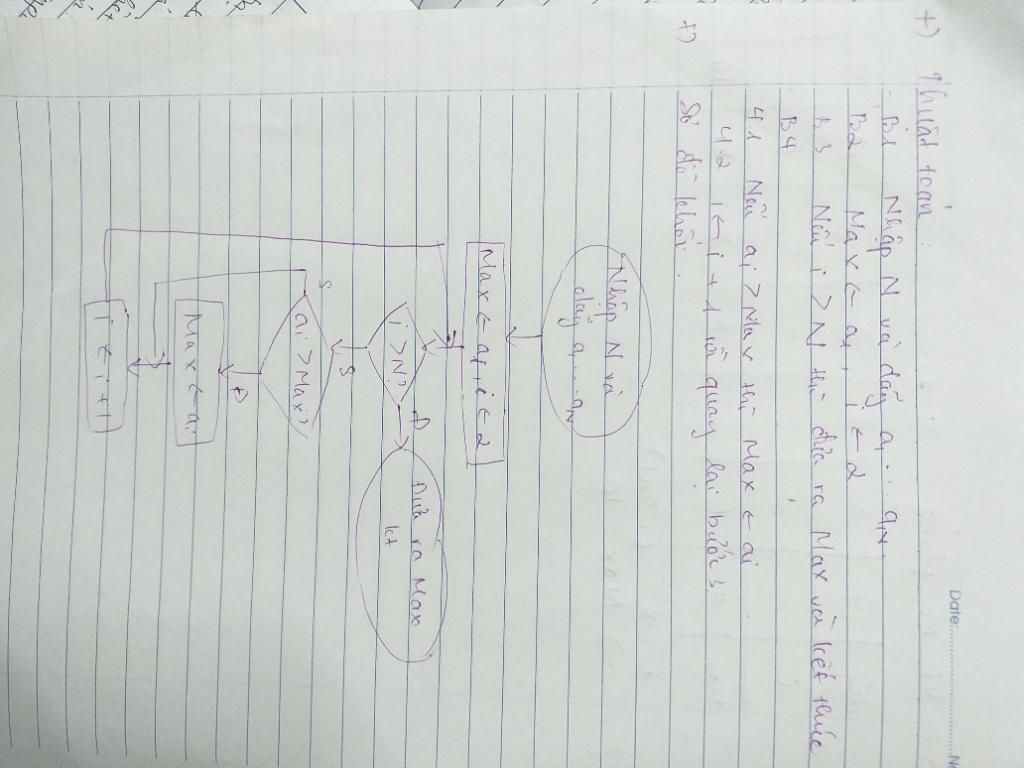 Date:
+) Thuật toán:
- B1 Nhập N và dãy a1 ... aN.
B2 Max ← a1, i ← 2
B3 Nếu i > N thì đưa ra Max và kết thúc
B4
4.1 Nếu ai > Max thì Max ← ai
4.2 i ← i + 1 và quay lại bước 3
+) Sơ đồ khối.
Nhập N và
dãy a1 ... aN
Max ← a1, i ← 2
i > N?
Đ
Đưa ra Max
kt
S
ai > Max?
S
Đ
Max ← ai
i ← i + 1